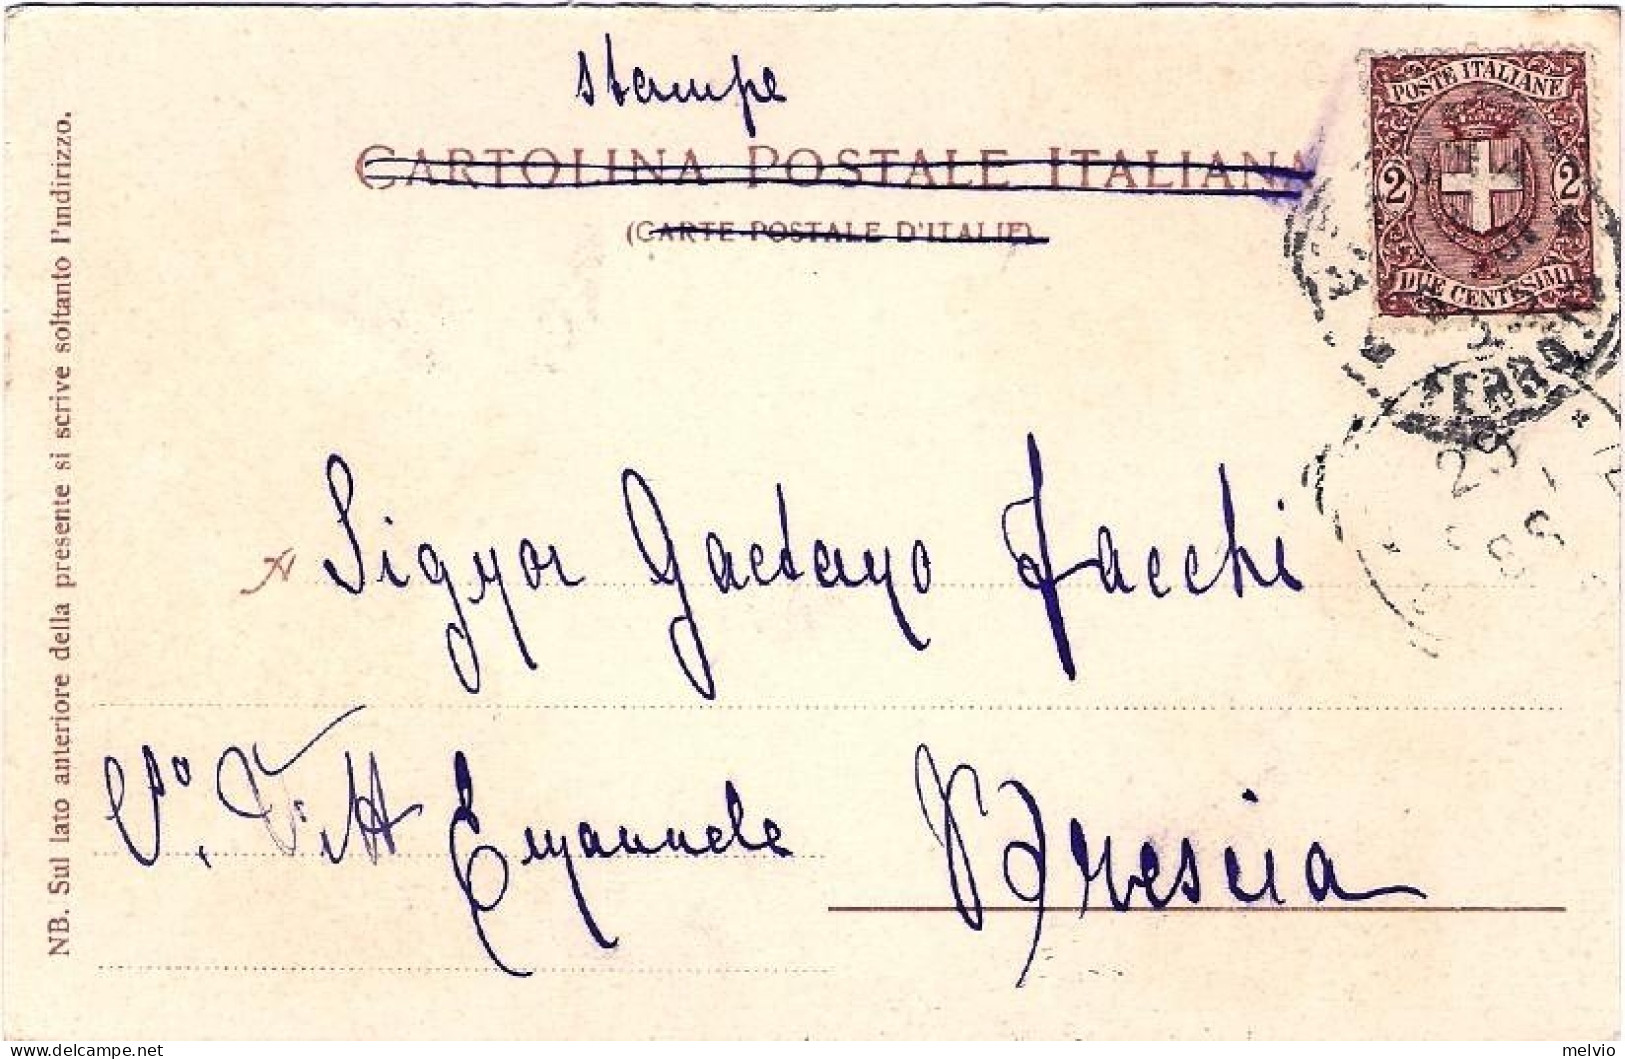 stampe
CARTOLINA POSTALE ITALIANA
(CARTE POSTALE D'ITALIE)
POSTE ITALIANE
2 2
DUE CENTESIMI
FERRO
29
A Signor Gaetano Facchi
V.º Vitt Emanuele Brescia
NB. Sul lato anteriore della presente si scrive soltanto l'indirizzo.
melvio